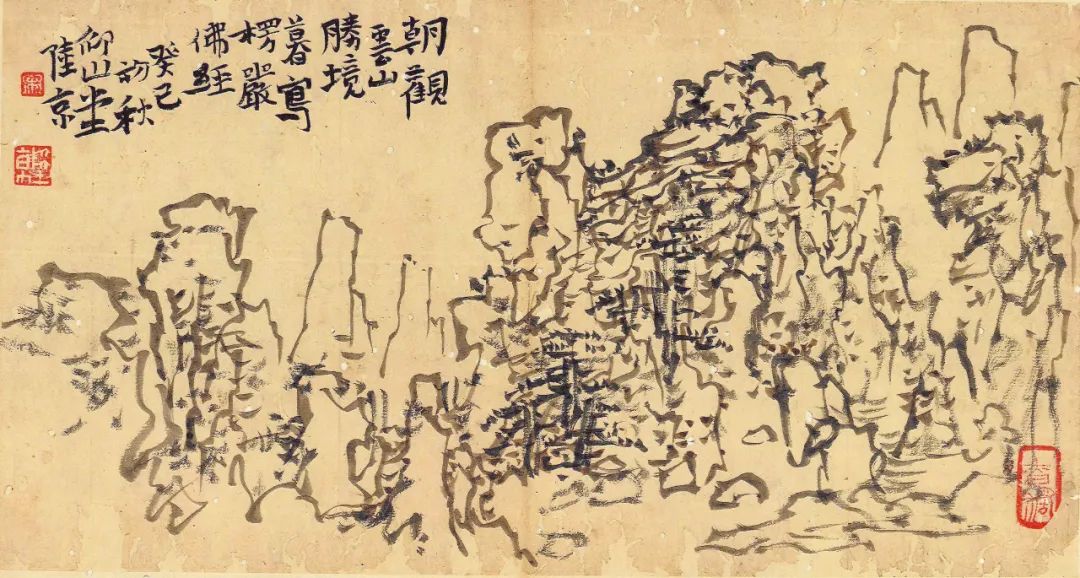 朝觀
雲山
勝境
暮寫
楞嚴
佛經
癸巳
初秋
仰山堂
陸京